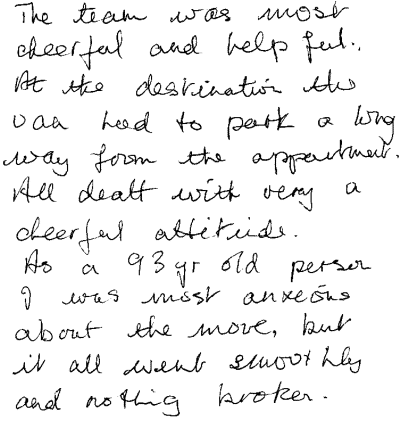 The team was most
cheerful and help ful.
At the destination the
van had to park a long
way form the appartment.
All dealt with very a
cheerful attitude.
As a 93 yr old person
I was most anxeous
about the move, but
it all went smoothly
and nothing broken.